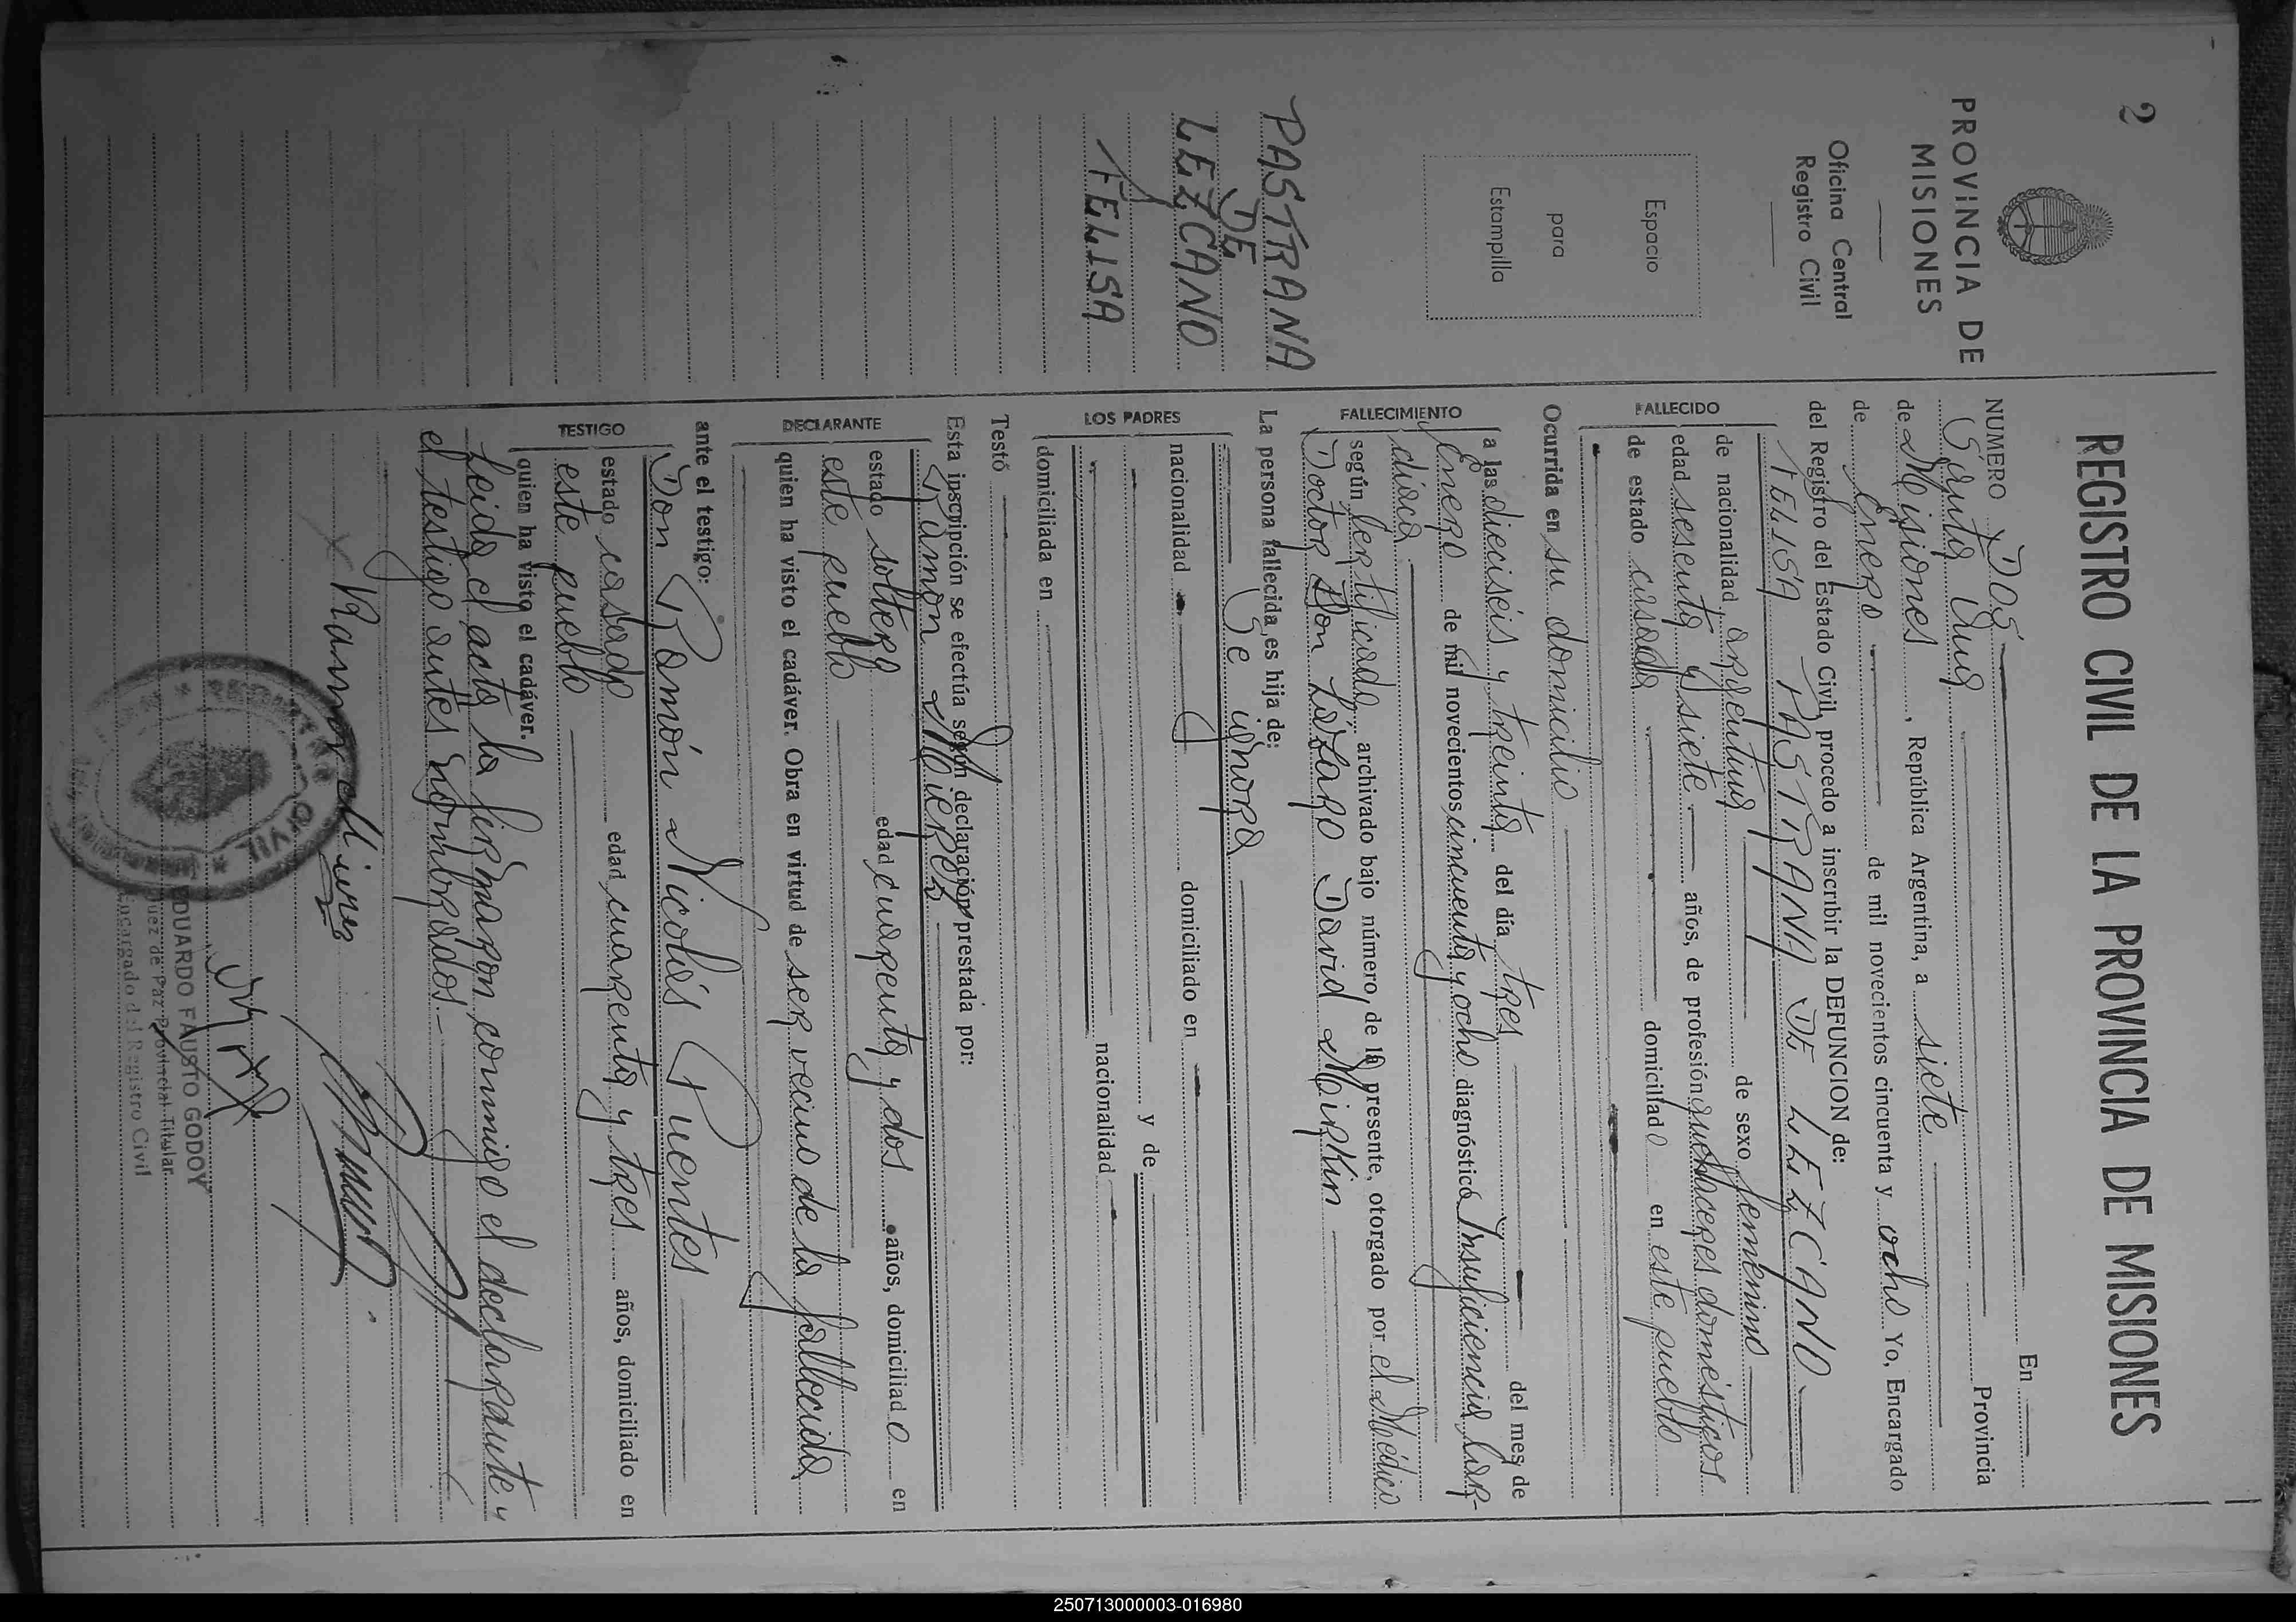 2
PROVINCIA DE
MISIONES
Oficina Central
Registro Civil
Espacio
para
Estampilla
PASTRANA
DE
LEZCANO
FELISA
REGISTRO CIVIL DE LA PROVINCIA DE MISIONES
NUMERO Dos En
Santa Ana Provincia
de Misiones, República Argentina, a siete
de Enero de mil novecientos cincuenta y ocho Yo, Encargado
del Registro del Estado Civil, procedo a inscribir la DEFUNCION de:
FALLECIDO
FELISA PASTRANA DE LEZCANO
de nacionalidad argentina de sexo femenino
edad sesenta y siete años, de profesión quehaceres domésticos
de estado casada domiciliado en este pueblo
Ocurrida en su domicilio
FALLECIMIENTO
a las dieciseis y treinta del día tres del mes de
Enero de mil novecientos cincuenta y ocho diagnóstico Insuficiencia Car-
díaca
según Certificado archivado bajo número de la presente, otorgado por el Médico
Doctor Don Lázaro David Mirkin
La persona fallecida es hija de:
LOS PADRES
Se ignora
nacionalidad domiciliado en
y de
nacionalidad
domiciliada en
Testó
Esta inscripción se efectúa según declaración prestada por:
DECLARANTE
Ramón Mierez
estado soltero edad cuarenta y dos años, domiciliado en
este pueblo
quien ha visto el cadáver. Obra en virtud de ser vecino de la fallecida
ante el testigo:
TESTIGO
Don Ramón Nicolás Fuentes
estado casado edad cuarenta y tres años, domiciliado en
este pueblo
quien ha visto el cadáver.
Leida el acta la firmaron conmigo el declarante y
el testigo antes nombrados.-
x Ramon Mieres
REGISTRO CIVIL
EDUARDO FAUSTO GODOY
Juez de Paz Provincial Titular
Encargado del Registro Civil
250713000003-016980